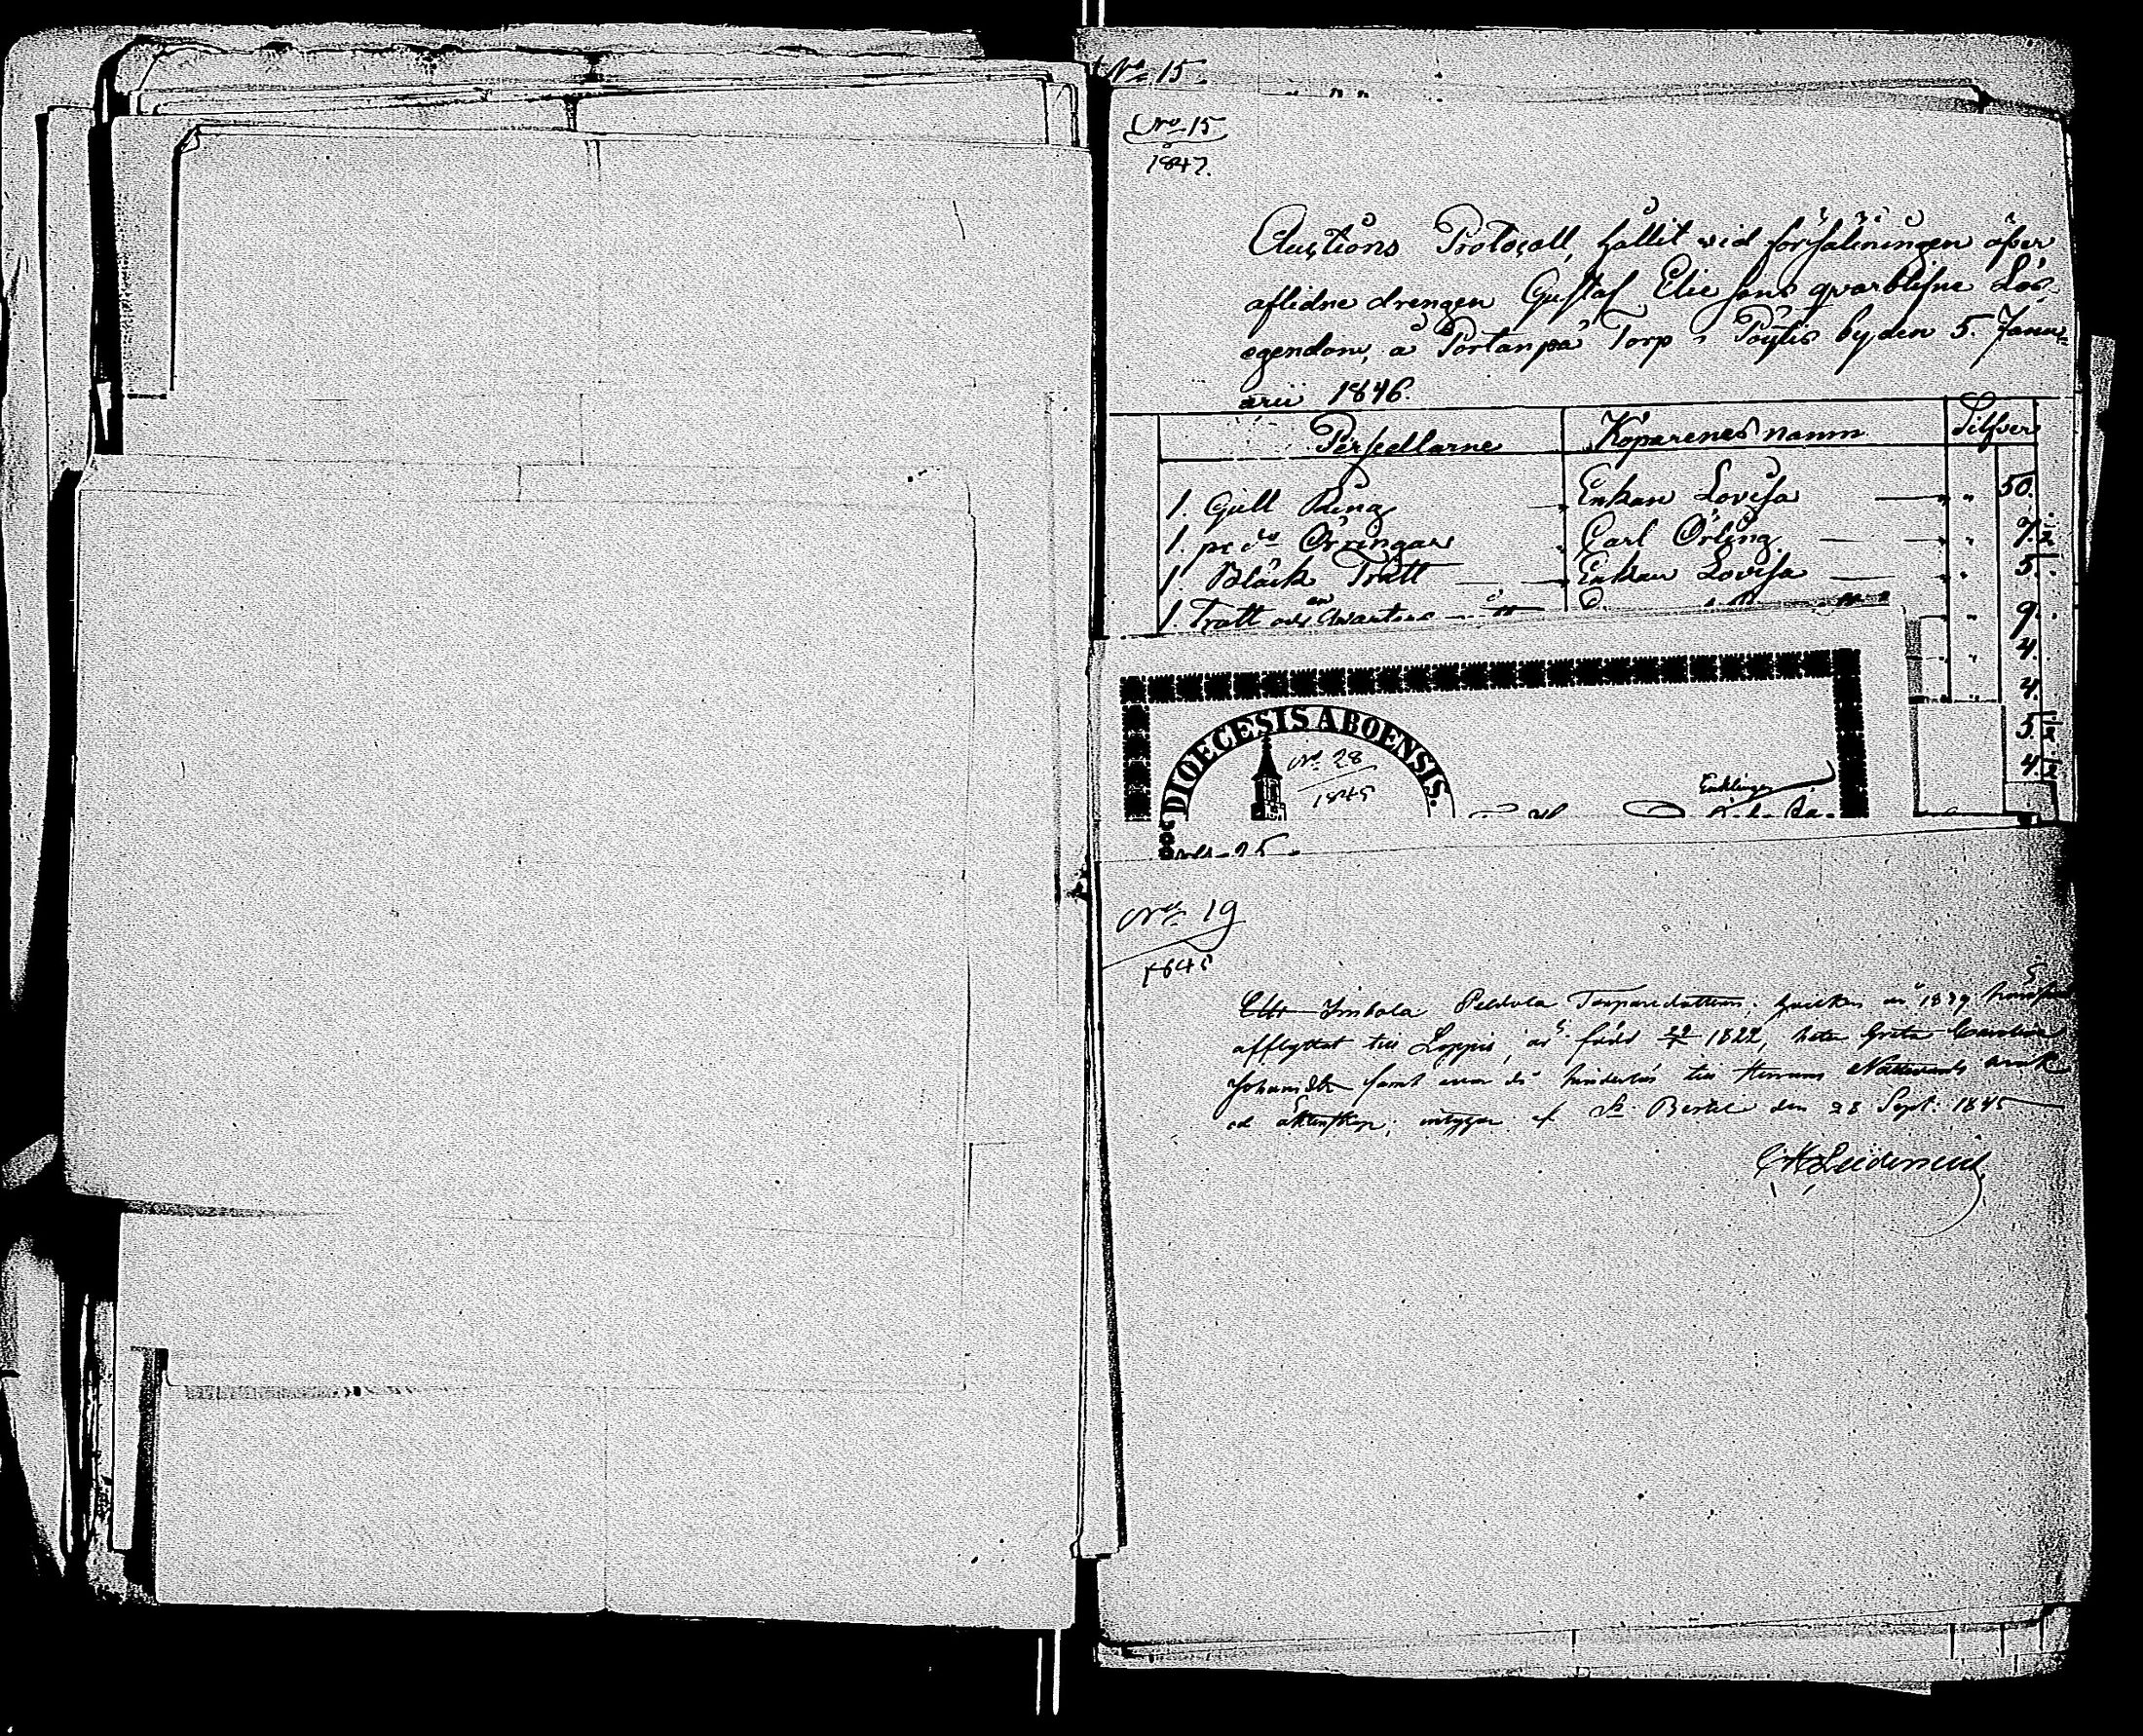 No 15
No 15
1847.
Auctions Protocoll, hållit vid försäliningen öfver
aflidne drengen Gustaf Elie sons qvarblifne Lös-
egendom, å Portanpää Torp i Pöytis by den 5. Janu-
arii 1846.
Persedlarne Köparenes namn Silfver
1. Gull Ring Enkan Lovisa 50.
1. pr do Örringar Carl Örling 7. ½
1. Bläck Tratt Enkan Lovisa 5.
1. Tratt och en Qvarters 9.
4.
4.
5. ½
4. ½
DIOECESIS ABOENSIS.
No 28
1845
No 19
1845
Imkola Peldola Torparedottren, hvilken år 1839
afflyttat till Loppis, är född 1822, heter Greta Carolina
Johansdtr samt var då hinderlös till Herrans Nattvards
och äktenskap; intygar af St. Bertils den 28 Sept. 1845